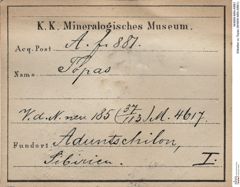 K. K. Mineralogisches Museum.
Acq. Post A. f. 881.
Name Topas
V. d. N. neu 185 (37/113) M. 4617.
Fundort Aduntschilon,
Sibirien. I.